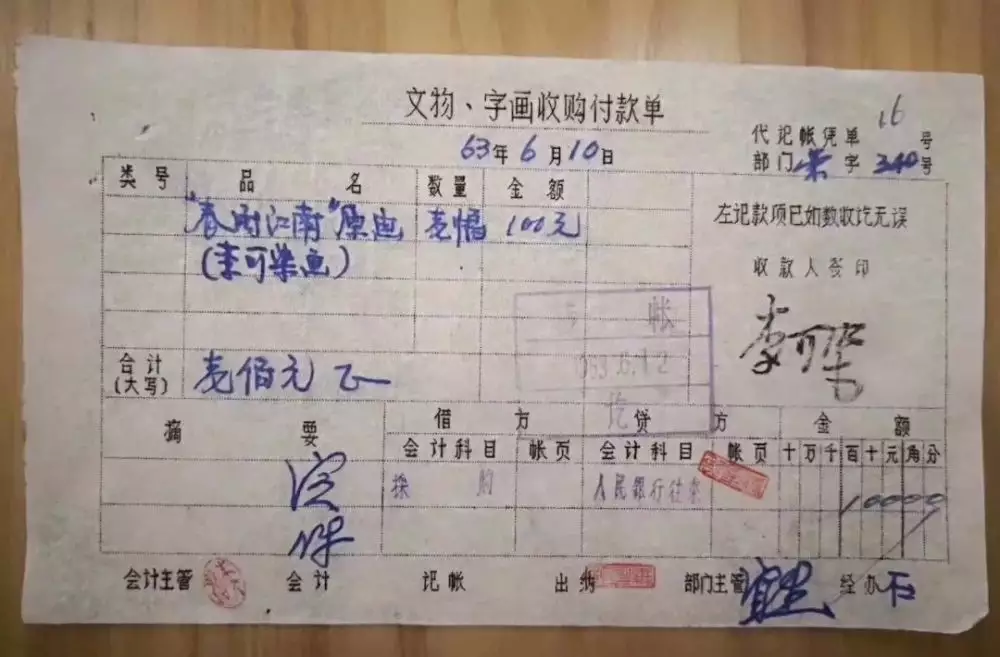 文物、字画收购付款单
16
代记帐凭单 号
63年6月10日
部门 字 340号
类号 品名 数量 金额
"春雨江南"原画 壹幅 100元
(李可染画)
左记款项已如数收讫无误
收款人签印
李可染
帐
1963.6.12
讫
合计
(大写)
壹佰元正
摘要 借方 贷方 金额
会计科目 帐页 会计科目 帐页 十万千百十元角分
採购 人民银行往来 10000
会计主管 会计 记帐 出纳 部门主管 经办